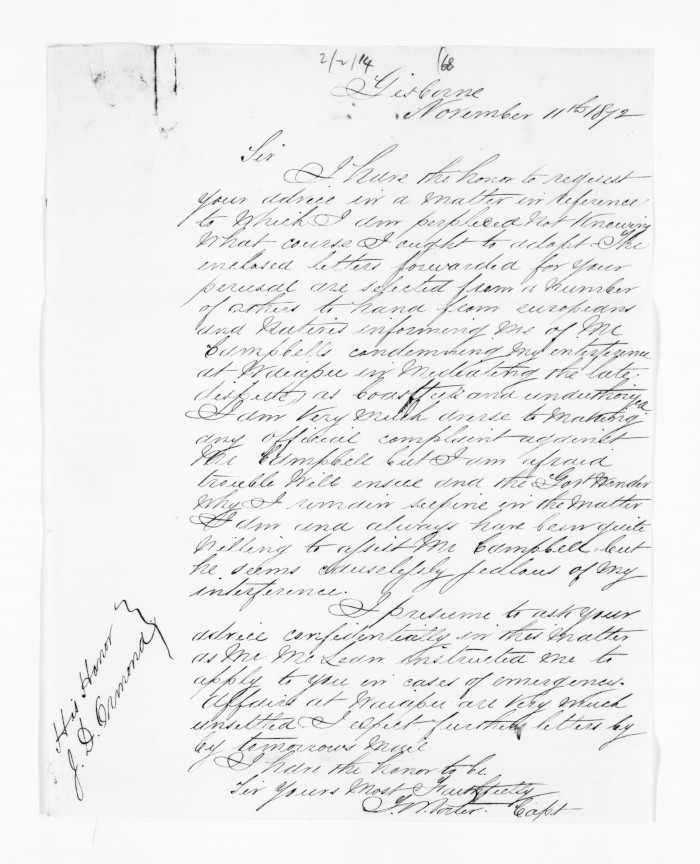 2/2/14 168
Gisborne
November 11th 1872
Sir
I have the honor to request
your advice in a matter in reference
to which I am perplexed not knowing
what course I ought to adopt. The
enclosed letters forwarded for your
perusal are selected from a number
of others to hand from europeans
and Natives informing me of Mr
Campbells condemning my interference
at Waiapu in mediating the late
dispute as boastful and unauthorized
I am very much averse to making
any official complaint against
Mr Campbell but I am afraid
trouble will ensue and the Govt wonder
why I remain supine in the matter
I am and always have been quite
willing to assist Mr Campbell but
he seems causelessly jealous of my
interference.
I presume to ask your
advice confidentially in this matter
as Mr McLean instructed me to
apply to you in cases of emergency.
Affairs at Waiapu are very much
unsettled I expect further letters by
by tomorrows mail
I have the honor to be
Sir Yours Most Faithfully
T. W. Porter. Capt
His Honor
J. D. Ormond